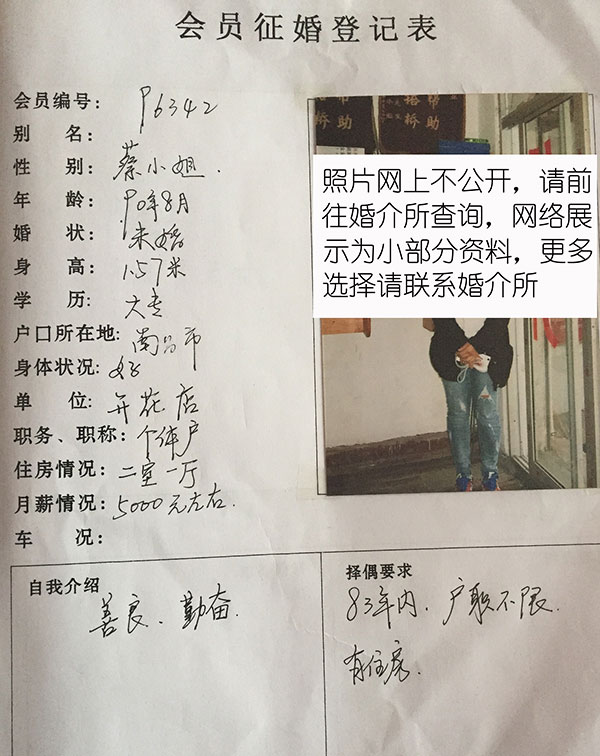 会员征婚登记表
会员编号: P6342
别 名:
性 别: 蔡小姐.
年 龄: 90年8月
婚 状: 未婚
身 高: 1.57米
学 历: 大专
户口所在地: 南昌市
身体状况: 好
单 位: 开花店
职务、职称: 个体户
住房情况: 二室一厅
月薪情况: 5000元左右.
车 况:
帮助
帮助
照片网上不公开，请前
往婚介所查询，网络展
示为小部分资料，更多
选择请联系婚介所
自我介绍
善良、勤奋.
择偶要求
83年内、户职不限.
有住房.